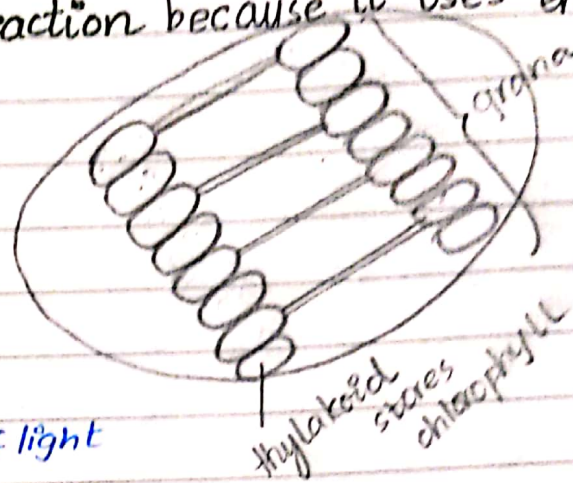 action because it uses
grana
thylakoid
stores
chlorophyll
light